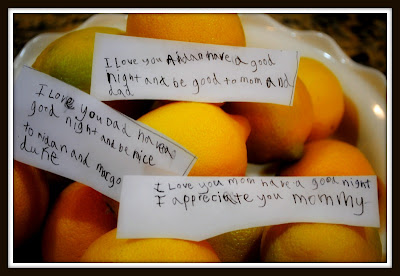 I love you Aidan have a good
night and be good to mom and
dad
I Love you Dad have a
good night and be nice
to and margo
duke
I Love you mom have a good night
I appreciate you mommy